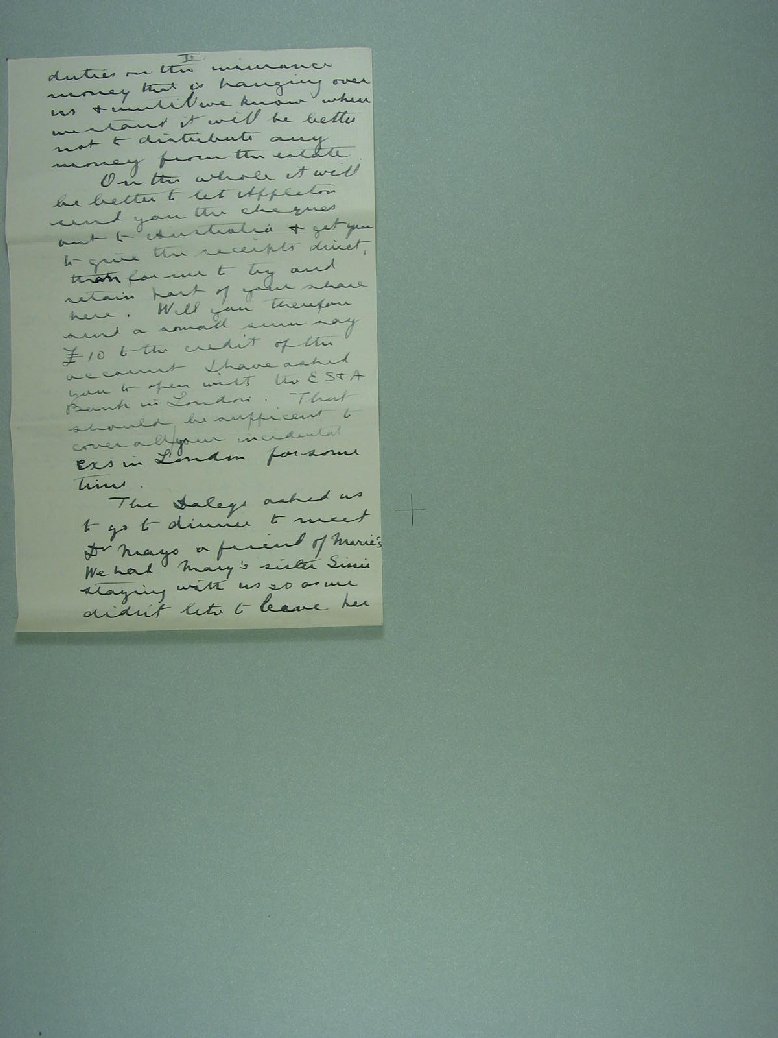 II
duties on the insurance
money that is hanging over
us & until we know where
we stand it will be better
not to distribute any
money from the estate.
On the whole it will
be better to let Appleton
send you the cheques
out to Australia & get you
to give the receipts direct,
than for me to try and
retain part of your share
here. Will you therefore
send a small sum say
£10 to the credit of the
account I have asked
you to open with the E S & A
Bank in London. That
should be sufficent to
cover all your incidental
exs in London for some
time.
The Daleys asked us
to go to dinner to meet
Dr Mayo a friend of Marie's
We had Mary's sister Sissie
staying with us so as we
didn't like to leave her